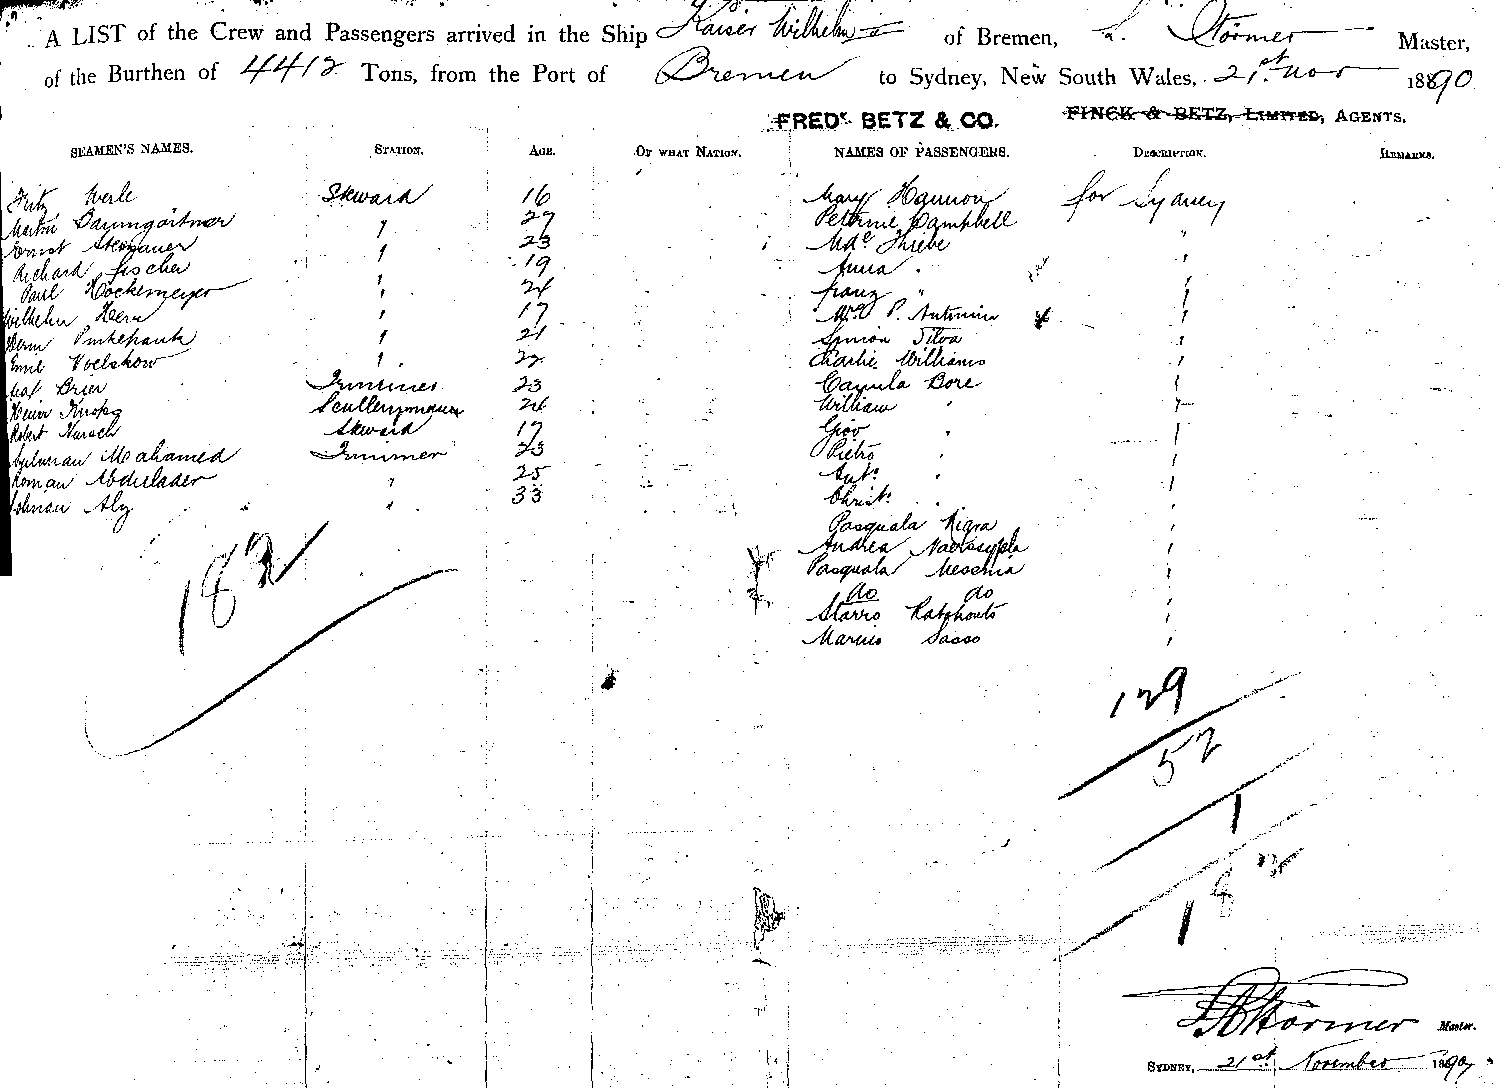 A LIST of the Crew and Passengers arrived in the Ship Kaiser Wilhelm II of Bremen, L. Störmer Master,
of the Burthen of 4412 Tons, from the Port of Bremen to Sydney, New South Wales, 21st Nov 1890
FREDK. BETZ & CO. FINCK & BETZ, LIMITED, AGENTS.
SEAMEN'S NAMES. STATION. AGE. OF WHAT NATION. NAMES OF PASSENGERS. DESCRIPTION. REMARKS.
Fritz Werle Steward 16 Mary Hannon for Sydney
Martin Baumgärtner " 27 Campbell
Ernst 23 Mde Thiebe "
Richard Fischer " 19 Anna " "
Paul Hockemeyer " 24 Franz " "
Wilhelm Kern " 17 P. Antonini "
Herm Pinkepank " 21 Simon Silva "
Emil Voelskow " 22 Charlie Williams "
Max Brier Trimmer 23 Bore "
Heinr Knopg Scullerymann 24 William " "
Robert Hirsch Steward 17 Giov " "
Mahamed Trimmer 23 Pietro " "
Abdulader " 25 Ant: " "
Aly " 33 Christ: " "
Pasquala Nigra "
Andrea "
Pasquala Meschia "
do do "
Starro "
Marius Sasso "
182
129
52
1
182
Störmer Master.
SYDNEY, 21st November 1890